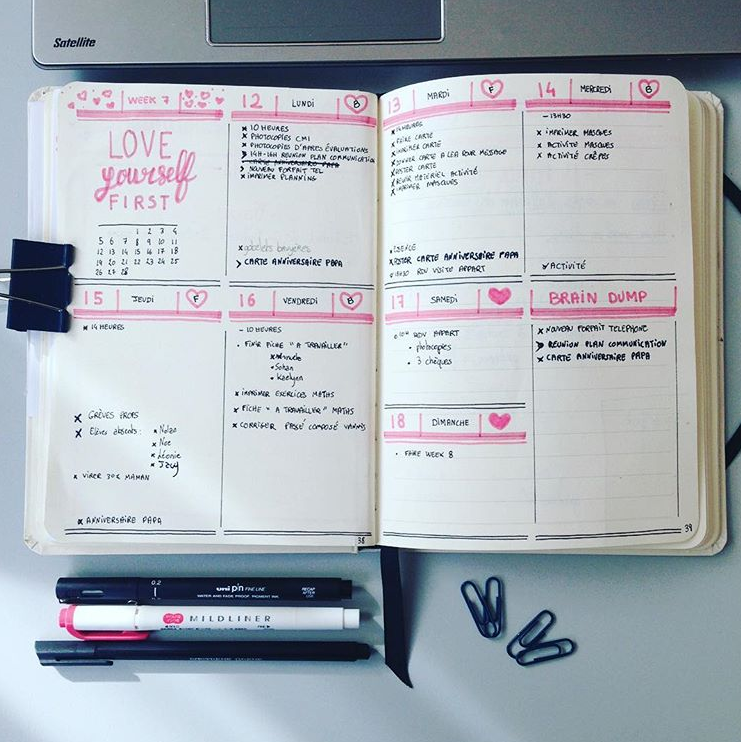 Satellite
WEEK 7
LOVE
yourself
FIRST
1 2 3 4
5 6 7 8 9 10 11
12 13 14 15 16 17 18
19 20 21 22 23 24 25
26 27 28
12 LUNDI B
x 10 HEURES
x PHOTOCOPIES CM1
x PHOTOCOPIES D'APRES ÉVALUATIONS
> 14H-16H REUNION PLAN COMMUNICATION
x CARTE ANNIVERSAIRE PAPA
> NOUVEAU FORFAIT TEL
x IMPRIMER PLANNING
x gobelets
> CARTE ANNIVERSAIRE PAPA
13 MARDI F
x 14 HEURES
x FAIRE CARTE
x IMPRIMER CARTE
x DONNER CARTE A LEA POUR MESSAGE
x POSTER CARTE
x REVOIR MATERIEL ACTIVITÉ
x IMPRIMER MASQUES
x ESSENCE
x POSTER CARTE ANNIVERSAIRE PAPA
13H30 RDV VISITE APPART
14 MERCREDI B
- 13H30
x IMPRIMER MASQUES
x ACTIVITÉ MASQUES
x ACTIVITÉ CRÊPES
ACTIVITÉ
15 JEUDI F
x 14 HEURES
x GRÈVES PROFS
x Elèves absents :
x Nolan
x Noe
x Léonie
x VIRER 30€ MAMAN
x ANNIVERSAIRE PAPA
16 VENDREDI B
- 10 HEURES
• FINIR FICHE "A TRAVAILLER"
x Manuela
x Sohan
x Kaelyan
x IMPRIMER EXERCICES MATHS
x FICHE "A TRAVAILLER" MATHS
x CORRIGER PASSÉ COMPOSÉ
38
17 SAMEDI
RDV APPART
• photocopies
• 3 chèques
18 DIMANCHE
• FAIRE WEEK 8
BRAIN DUMP
x NOUVEAU FORFAIT TELEPHONE
> REUNION PLAN COMMUNICATION
x CARTE ANNIVERSAIRE PAPA
39
0.2
uni pin FINE LINE
WATER AND FADE PROOF, PIGMENT INK
RECAP
AFTER
USE
MILDLINER